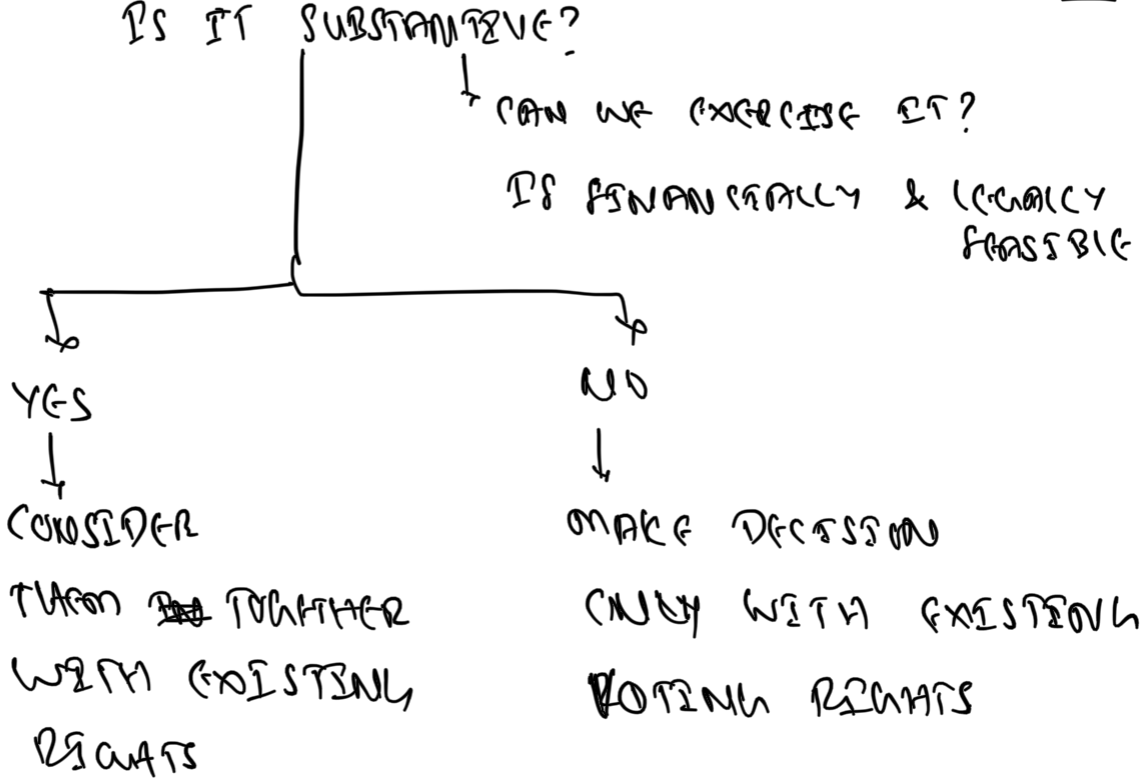 IS IT SUBSTANTIVE?
CAN WE EXERCISE IT?
IS FINANCIALLY & LEGALLY
FEASIBLE
YES
NO
CONSIDER
THEM TOGETHER
WITH EXISTING
RIGHTS
MAKE DECISION
ONLY WITH EXISTING
VOTING RIGHTS